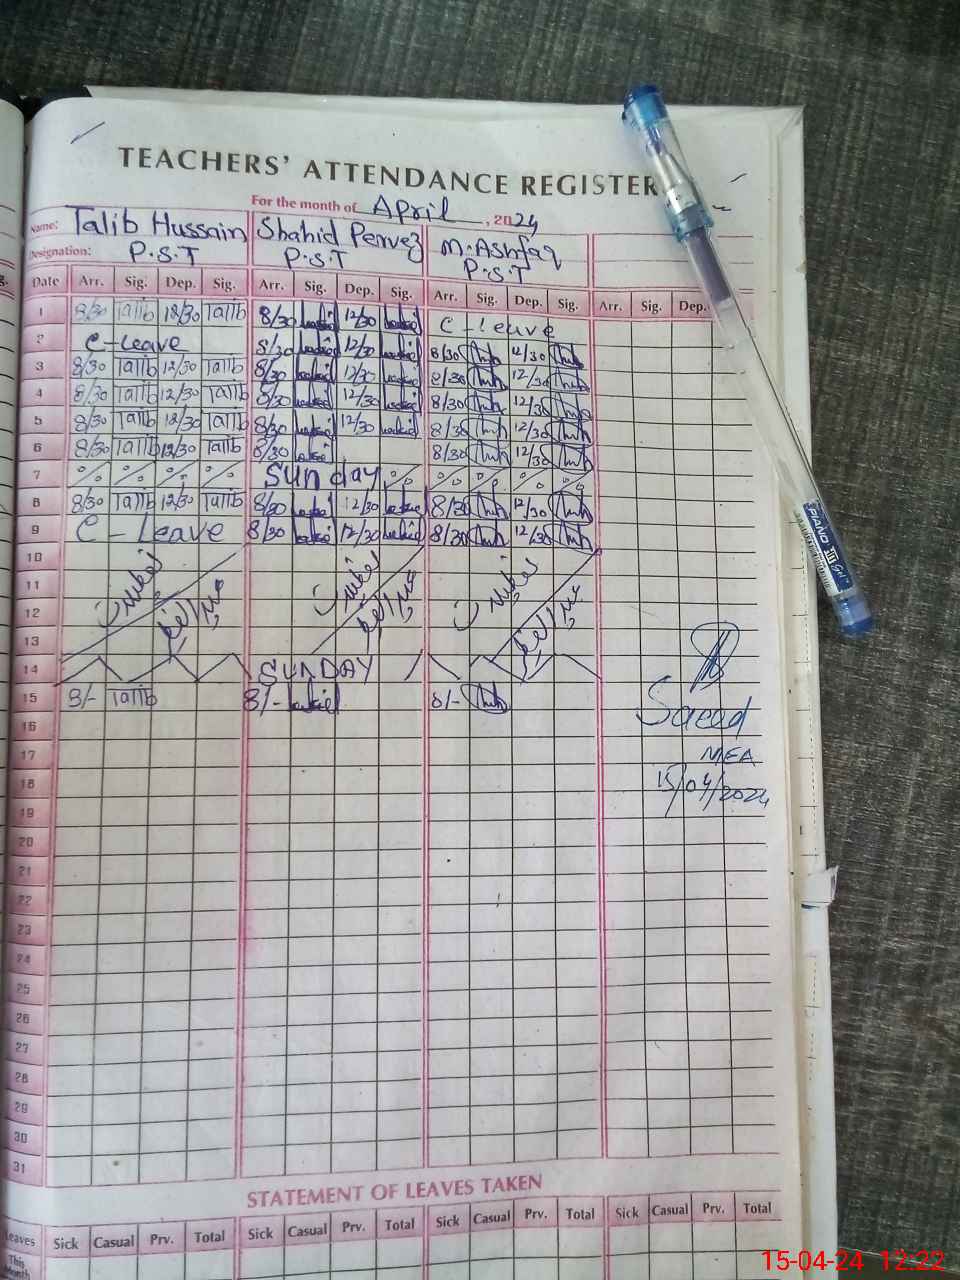 TEACHERS' ATTENDANCE REGISTER
For the month of April, 2024
Name: Talib Hussain Shahid Pervez M. Ashfaq
Designation: P.S.T P.S.T P.S.T
Date Arr. Sig. Dep. Sig. Arr. Sig. Dep. Sig. Arr. Sig. Dep. Sig. Arr. Sig. Dep.
1 8/30 Talib 12/30 Talib 8/30 12/30 C-Leave
2 C-Leave 8/30 12/30 8/30 12/30
3 8/30 Talib 12/30 Talib 8/30 12/30 8/30 12/30
4 8/30 Talib 12/30 Talib 8/30 12/30 8/30 12/30
5 8/30 Talib 12/30 Talib 8/30 12/30 8/30 12/30
6 8/30 Talib 12/30 Talib 8/30 8/30 12/30
7 Sunday
8 8/30 Talib 12/30 Talib 8/30 12/30 8/30 12/30
9 C-Leave 8/30 12/30 8/30 12/30
10
11
12
13
14 SUNDAY
15 8/- Talib 8/- 8/-
16
17
18
19
20
21
22
23
24
25
26
27
28
29
30
31
Saeed
MEA
15/04/2024
STATEMENT OF LEAVES TAKEN
Leaves Sick Casual Prv. Total Sick Casual Prv. Total Sick Casual Prv. Total Sick Casual Prv. Total
This
Month
PIANO
15-04-24 12:22